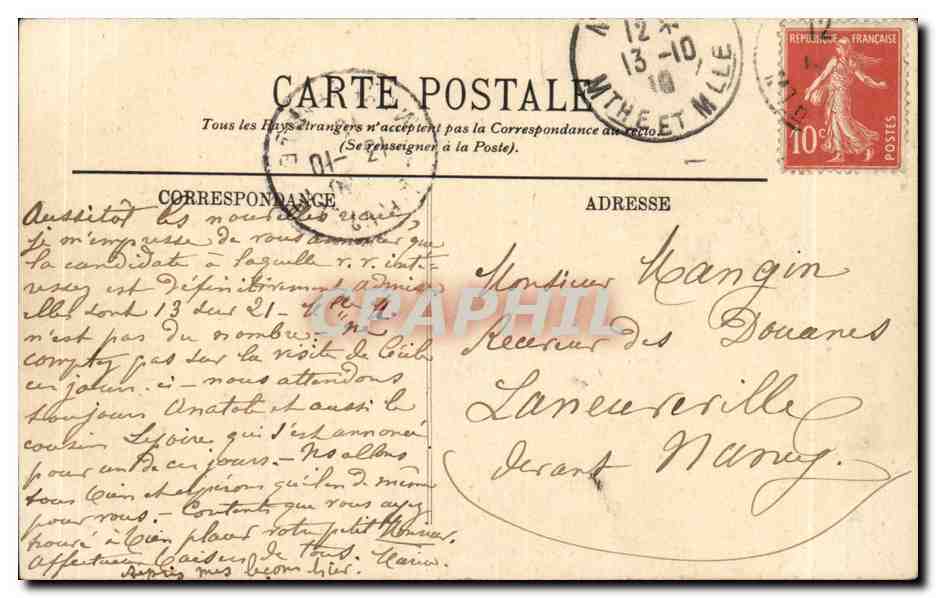 CARTE POSTALE
Tous les Pays étrangers n'acceptent pas la Correspondance au recto.
(Se renseigner à la Poste).
12
13 -10
10
MTHE ET MLLE
12
REPUBLIQUE FRANÇAISE
10c
POSTES
CORRESPONDANCE
Aussitôt les nouvelles reçues,
je m'empresse de vous annoncer que
la candidate à laquelle v. v. inté-
ressez est définitivement admise
elles sont 13 sur 21 -
n'est pas du nombre. Ne
comptez pas sur la visite de
ces jours-ci - nous attendons
toujours Anatole et aussi le
cousin qui s'est annoncé
pour un de ces jours. - Ns allons
tous bien et espérons qu'il en de même
pour vous. - Contents que vous ayez
trouvé à bien placer votre petit
affectueux baisers de tous. Maria
Après mes leçons hier.
ADRESSE
Monsieur Mangin
Receveur des Douanes
Laneuveville
devant Nancy.
CPAPHIL